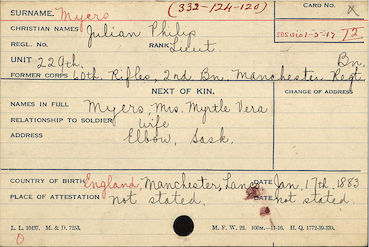 SURNAME. Myers (332-124-120) CARD NO. X
CHRISTIAN NAMES Julian Philip T2
REGL. NO. RANK Lieut.
UNIT 229th. Bn.
FORMER CORPS 60th. Rifles, 2nd Bn. Manchester Regt
NEXT OF KIN. CHANGE OF ADDRESS
NAMES IN FULL Myers, Mrs. Myrtle Vera
RELATIONSHIP TO SOLDIER Wife
ADDRESS Elbow, Sask.
COUNTRY OF BIRTH England, Manchester, Lancs. DATE Jan. 17th. 1883
PLACE OF ATTESTATION not stated. DATE not stated.
L. L. 10437. M. & D. 7253. M. F. W. 22. 100M.—11-16. H. Q. 1772-39-330.